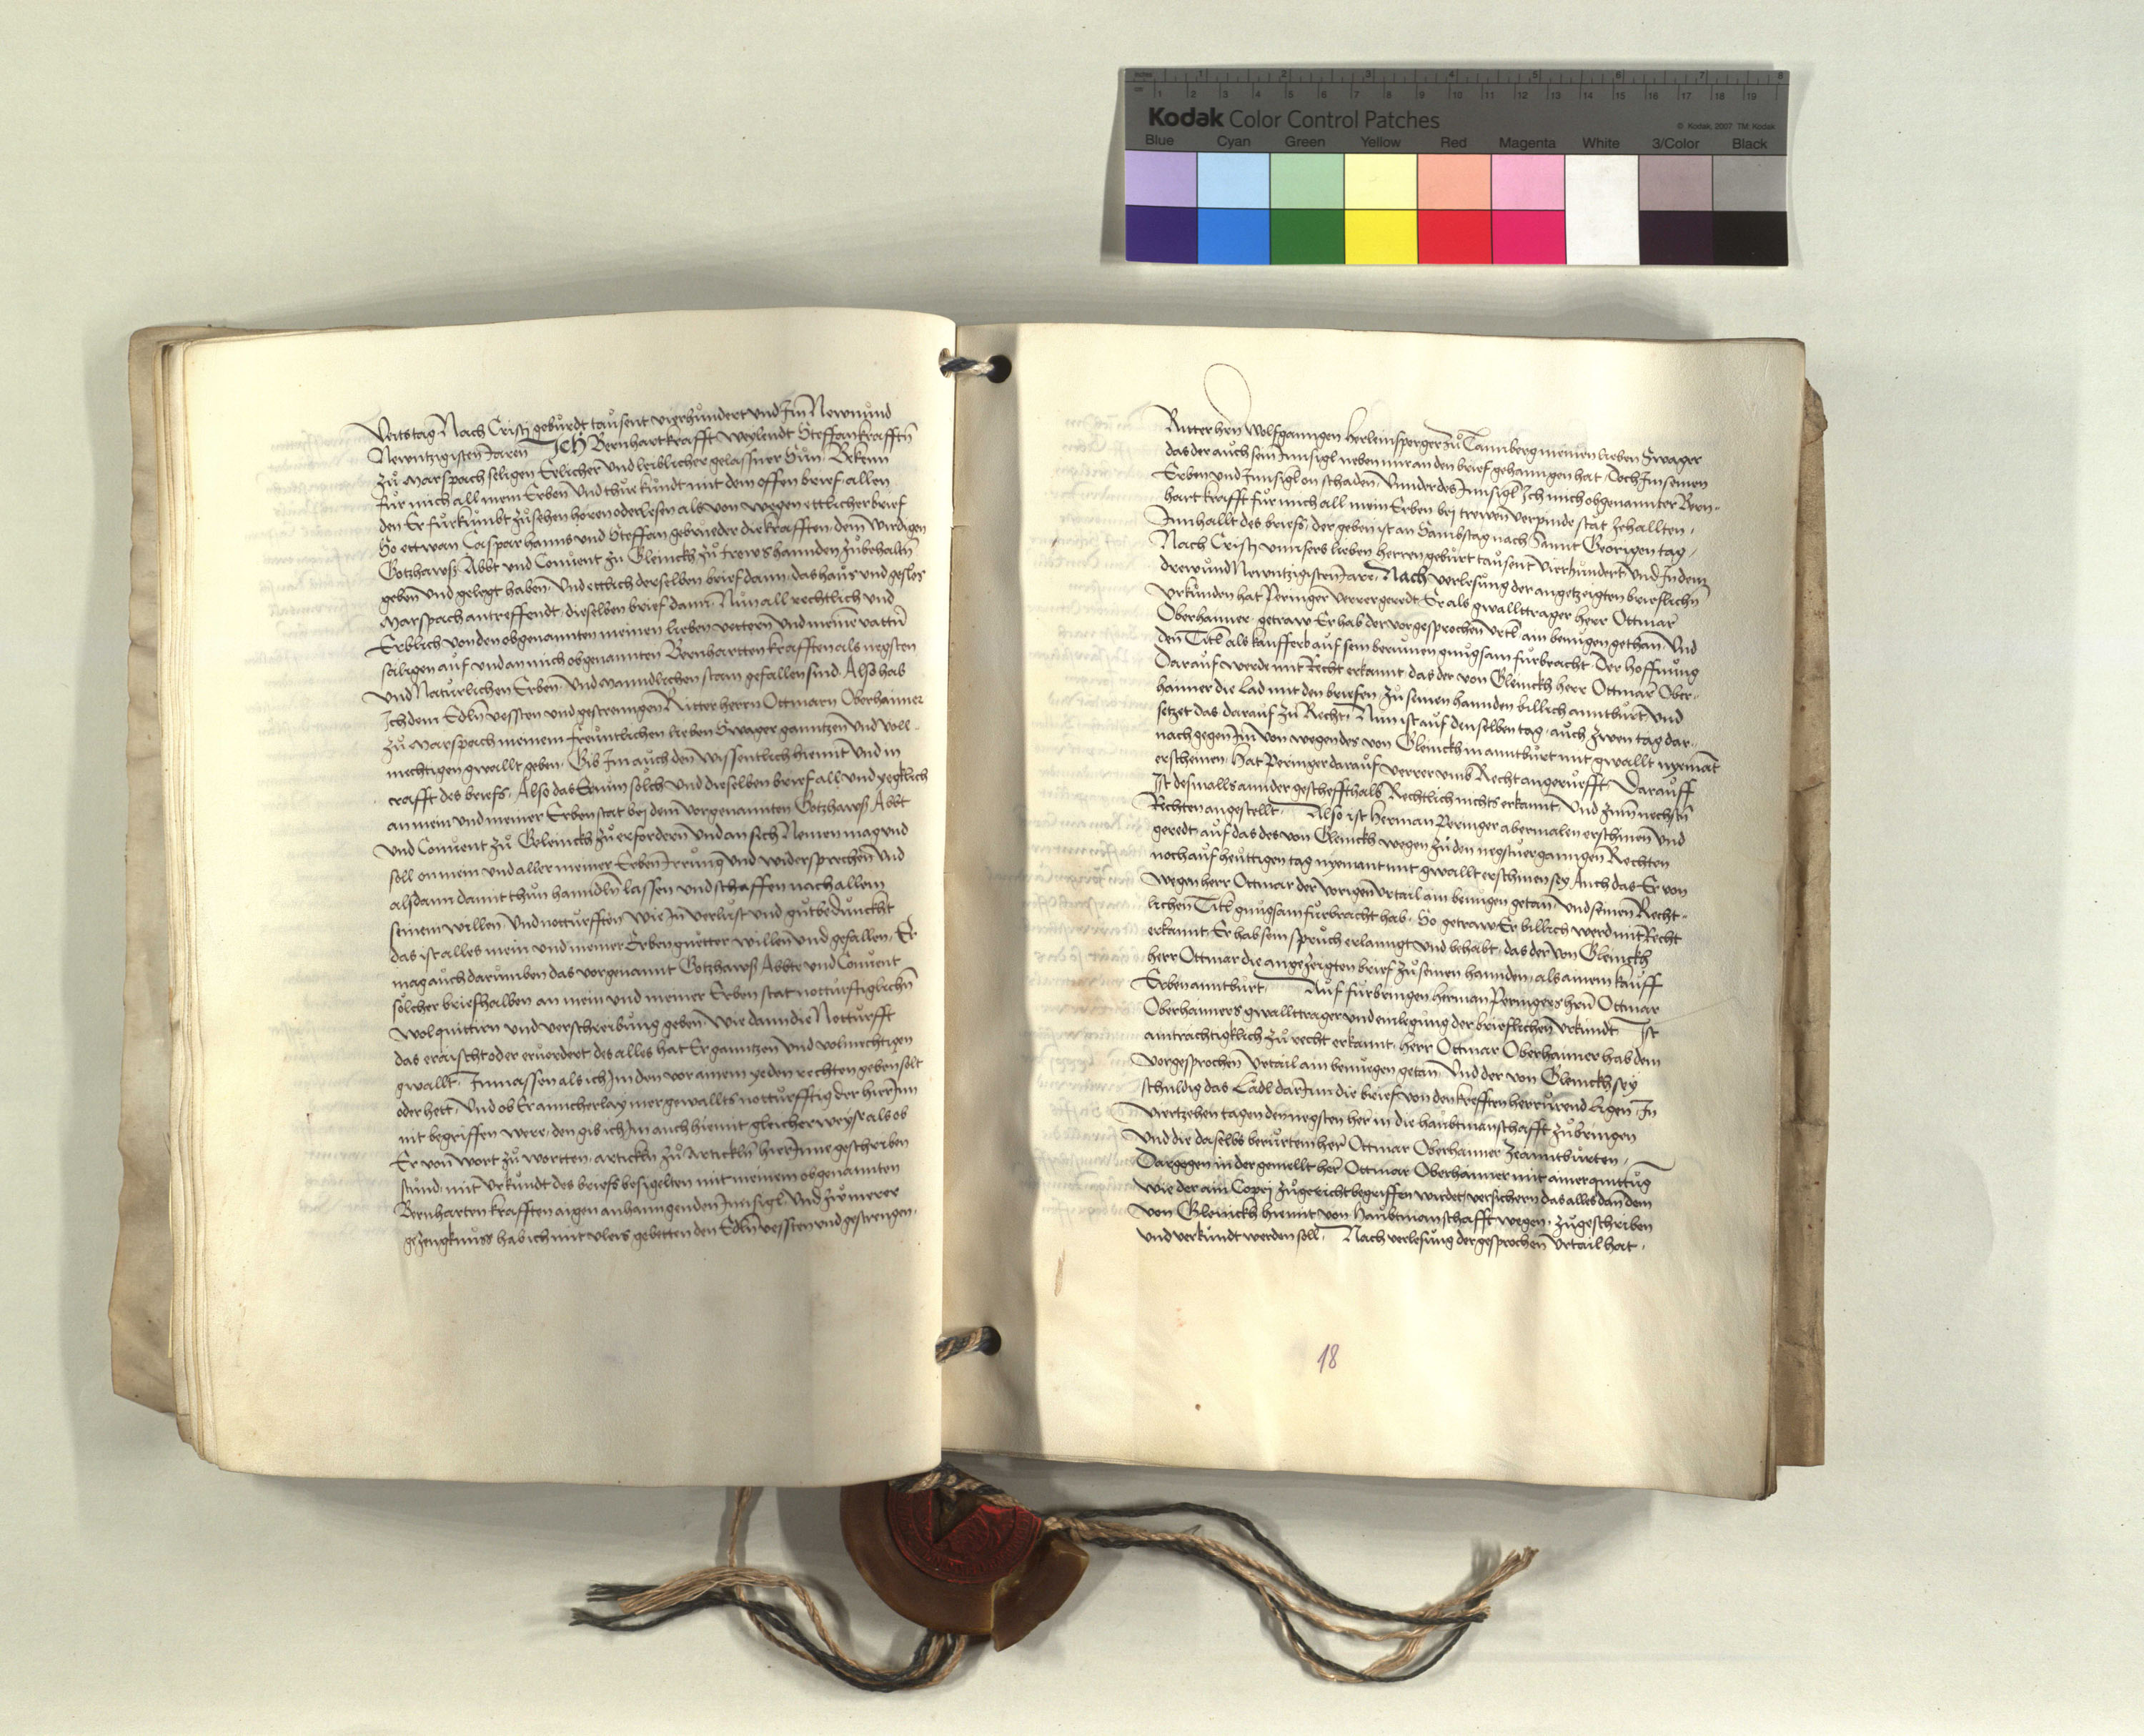 inches 1 2 3 4 5 6 7 8
cm 1 2 3 4 5 6 7 8 9 10 11 12 13 14 15 16 17 18 19
Kodak Color Control Patches © Kodak, 2007 TM: Kodak
Blue Cyan Green Yellow Red Magenta White 3/Color Black
Veitstag Nach Cristj geburdt tausent vierhundert und Im Newnund
Newntzigisten Jaren Ich Bernhart krafft weylendt Steffan krafftn̄
zů Marspach seligen Erlicher und leiblicher gelassner Sun. Bekenn
fůr mich all mein Erben und thůe kundt mit dem offen brief allen
den Er fůrkůmbt zůsehen horen oder lesen als von wegen ettlicher brief
So ettwan Caspar hanns und Steffan gebrueder die krafften dem wirdigen
Gotzhawß Abbt und Convent zu Gleinckh zů trews hannden zůbehaltn̄
geben und gelegt haben. Und ettlich derselben brief dann das haůs und geslos
Marspach antreffendt, dieselben brief dann. Nůn all rechtlich und
Erblich von den obgenannten meinen lieben vettern und meinē vattn̄
säligen auf und an mich obgenannten Bernhartten krafften als negsten
und Natůrlichen Erben. Und manndlichen stam gefallen sind. Also hab
Ich dem Edln̄ vessten und gestrenngen Ritter herrn Ottmarn Oberhaimer
zů Marspach meinem freůntlichen lieben Swager ganntzen und voll-
mechtigen gwallt geben. Gib Im aůch den wissentlich hiemit und in
crafft des briefs. Also das Er nům solch und dieselben brief all und yegklich
an mein und meiner Erben stat bej dem vorgenannten Gotzhawß Abbt
und Convent zů Gleinckh zů erfordern und an sich Nemen mag und
soll on mein und aller meiner Erben Irrůng und widersprechen und
alsdann damit thůn hanndln̄ lassen und schaffen nach allem
seinem willen. Und notturfften wie In̄ verlust und gůtbedůnckht
das ist alles mein und meiner Erben guetter willen und gefallen. Er
mag aůch darumben das vorgenannt Gotzhawß Abbte und Convent
solcher brief halben an mein und meiner Erben stat notturftiglichn̄
wol quittirn und verschreibung geben. Wie dann die Notturfft
das eraischt oder ervordert des alles hat Er ganntzen und volmechtigen
gwallt. Inmassen als ich Im den vor ainem yeden rechten geben solt
oder hett. Und ob Er ainicherlay mer gewallts notturfftig der hierInn
nit begriffen were, den gib ich Im auch hiemit gleicher weys als ob
Er von wort zů wortten, artickln zů Artickln̄ hierInne geschriben
stund, mit urkundt des briefs besigelten mit meinem obgenannten
Bernharten krafften aigen anhanngenden Innsigl. Und zu merer
gezeugknuss hab ich mit vleis gebetten den Edln̄ vessten und gestrengen.
Ritter hern̄ Wolfganngen herleinsperger zů Tannberg meinen lieben Swager
das der aůch sein Innsigl neben mir an den brief gehanngen hat. Doch Im seinen
Erben und Innsigl on schaden. Unnder des Innsigl Ich mich obgenannter Bern-
hart krafft fůr mich all mein Erben bej trewen verpinde stat zehallten.
Innhallt des briefs, der geben ist an Sambstag nach Sannt Georigen tag,
Nach Cristj unnsers lieben herren gebůrt tausent vierhundert und In dem
drewundNewntzigisten Jare. Nach verlesung der angetzeigten brieflichn̄
urkunden hat Peringer verrer geredt Er als gwallttrager herr Ottmar
Oberhaimer. getraw Er hab der vorgesprochen urtl ain benůgen gethan. Und
den Titl als kauffers auf sein beruffen gnůgsam fůrbracht. Der hoffnung
Darauf werde mit Recht erkannt, das der von Gleinckh herr Ottmar Ober-
haimer die Lad mit den briefen zů seinen hannden billich anntburt und
setzet das darauf zů Recht. Nun ist auf denselben tag, aůch zwen tag dar-
nach gegen Im von wegen des von Gleinckh in anntburt mit gwallt nyemāt
erscheinen. Hat Peringer darauf verrer umb Recht angerůefft. Darauff
Ist desmalls annder gescheffthalb Rechtlich nichts erkannt. Und zum nechstn̄
Rechten angestellt. Also ist Herman Peringer abermalen erschinen und
geredt auf das des von Gleinckh wegen zů den negstvergangen Rechten
noch auf heuttigen tag nyemant mit gwallt erschinen sey Auch das Er von
wegen herr Ottmar der vorigen urtail ain benůgen getan. Und seinen Recht-
lichen Titl gnůgsam fůrbracht hab. So getraw Er billich werd mit Recht
erkannt. Er hab sein spruch erlanngt und behabt, das der von Gleinckh
herr Ottmar die angezeigten brief zů seinen hannden als ainem kauff
Erben anntburt. Auf fůrbringen herman Peringers hern̄ Ottmar
Oberhaimers gwallttrager und einlegung der brieflichen urkundt Ist
aintrachtigklich zů recht erkannt. herr Ottmar Oberhaimer hab dem
vorgesprochen urtail ain benuegen getan. Und der von Gleinckh sey
schuldig das Lädl darInn die brief von den krefften herrůrend ligen In
viertzehen tagen den negsten her in die haubtmanschafft zůbringen
und die daselbs berůrtem her̄ Ottmar Oberhaimer zeanntburten.
Dargegen in der gemellt her̄ Ottmar Oberhaimer mit ainer quittūg
wie der ain Copej zu gericht begriffen wirdet versichern das alles dan̄ dem
von Gleinckh hiemit von haubtmanschafft wegen. zůgeschriben
und verkundt werden soll. Nach verlesung der gesprochen urtail hat.
18